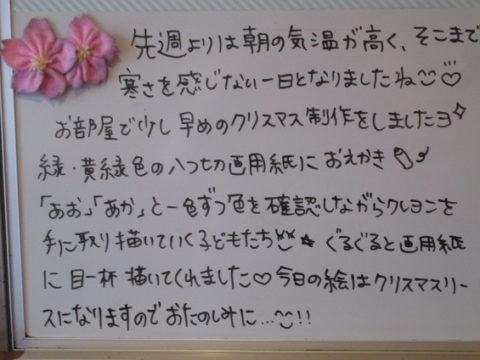 先週よりは朝の気温が高く、そこまで
寒さを感じない一日となりましたね
お部屋で少し早めのクリスマス制作をしましたヨ
緑・黄緑色の八つ切画用紙におえかき
「あお」「あか」と一色ずつ色を確認しながらクレヨンを
手に取り描いていく子どもたち ぐるぐると画用紙
に目一杯描いてくれました♡今日の絵はクリスマスリー
スになりますのでおたのしみに…!!